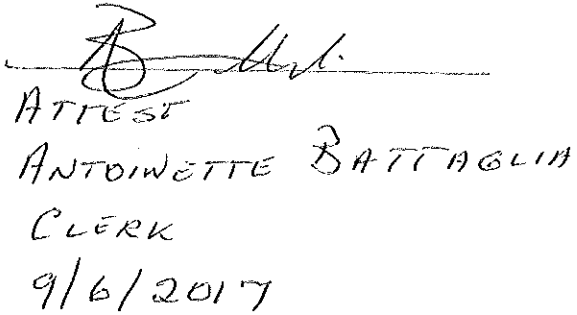 ATTEST
ANTOINETTE BATTAGLIA
CLERK
9/6/2017